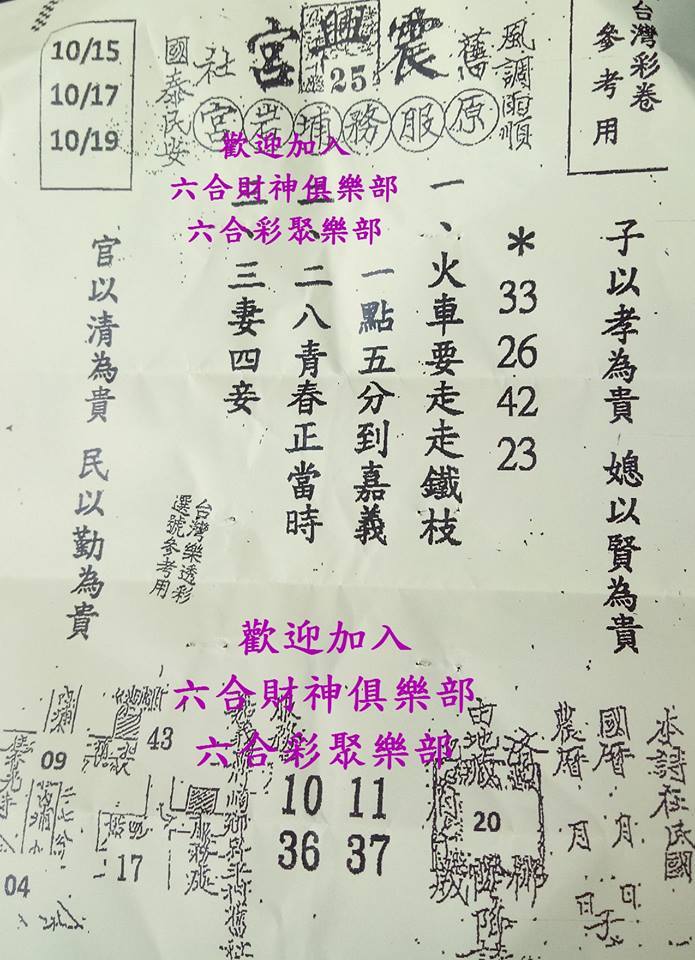 台灣彩卷
參考用
風調雨順
舊
震興宮
25
社
國泰民安
10/15
10/17
10/19
原服務埔岩宮
歡迎加入
六合財神俱樂部
六合彩聚樂部
子以孝為貴 媳以賢為貴
*
33
26
42
23
一、火車要走走鐵枝
一點五分到嘉義
二、二八青春正當時
三、三妻四妾
官以清為貴 民以勤為貴
台灣樂透彩
選號參考用
歡迎加入
六合財神俱樂部
六合彩聚樂部
本詩在民國
國曆 月 日
農曆 月 日
20
10 11
36 37
43
09
17
04